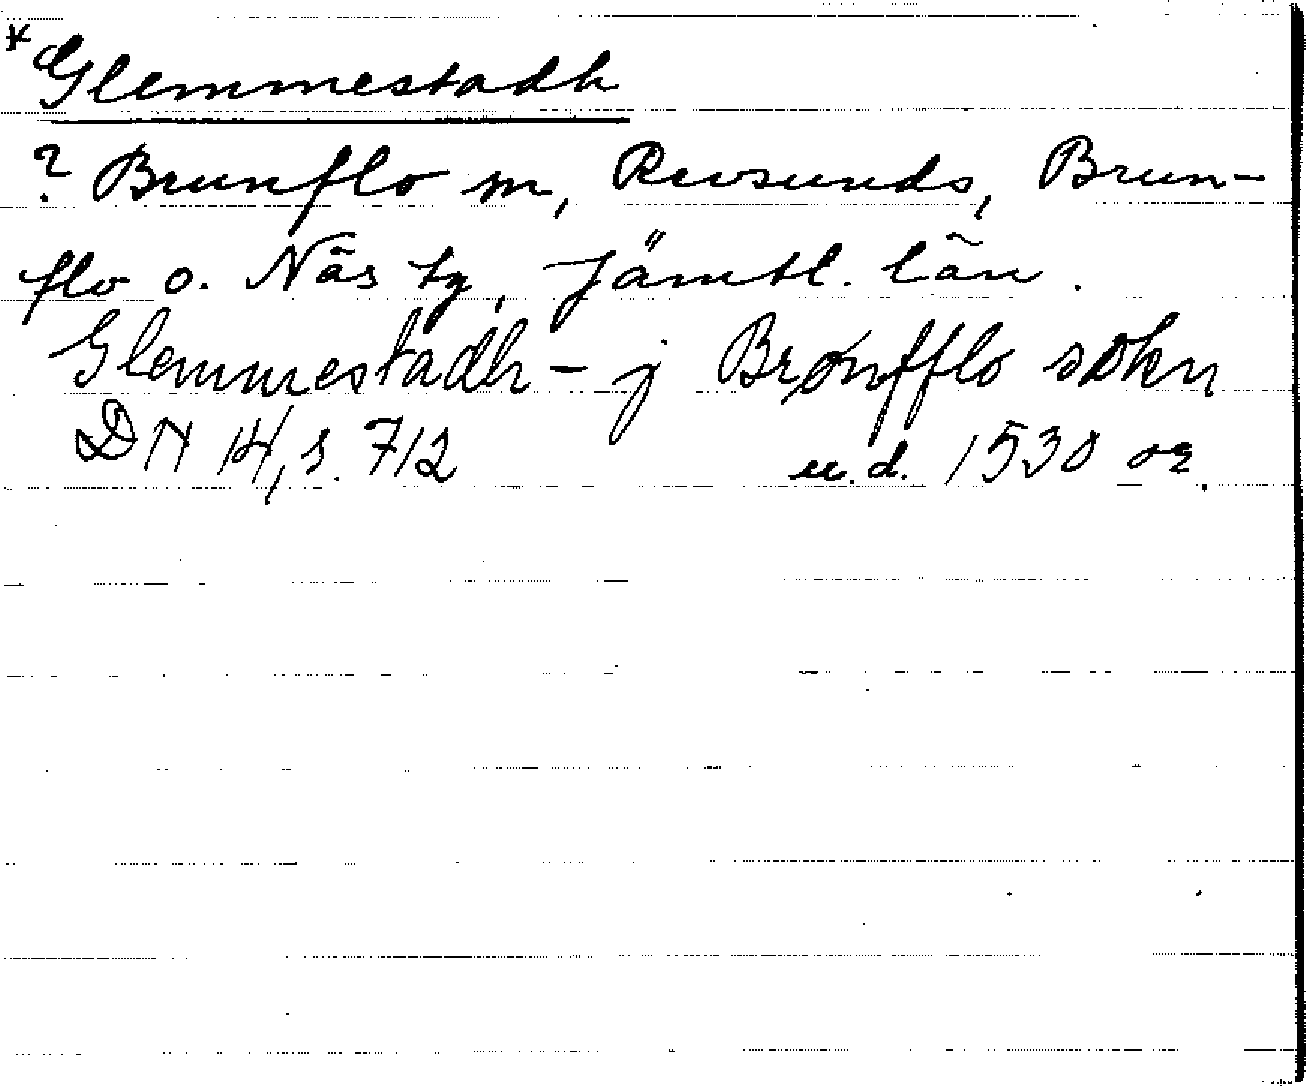 *Glemmestadh
? Brunflo sn, Revsunds, Brun-
flo o. Näs tg, Jämtl. län.
Glemmestadh – j Brønfflo sokn
DN 14, s. 712 u.d. 1530 or.